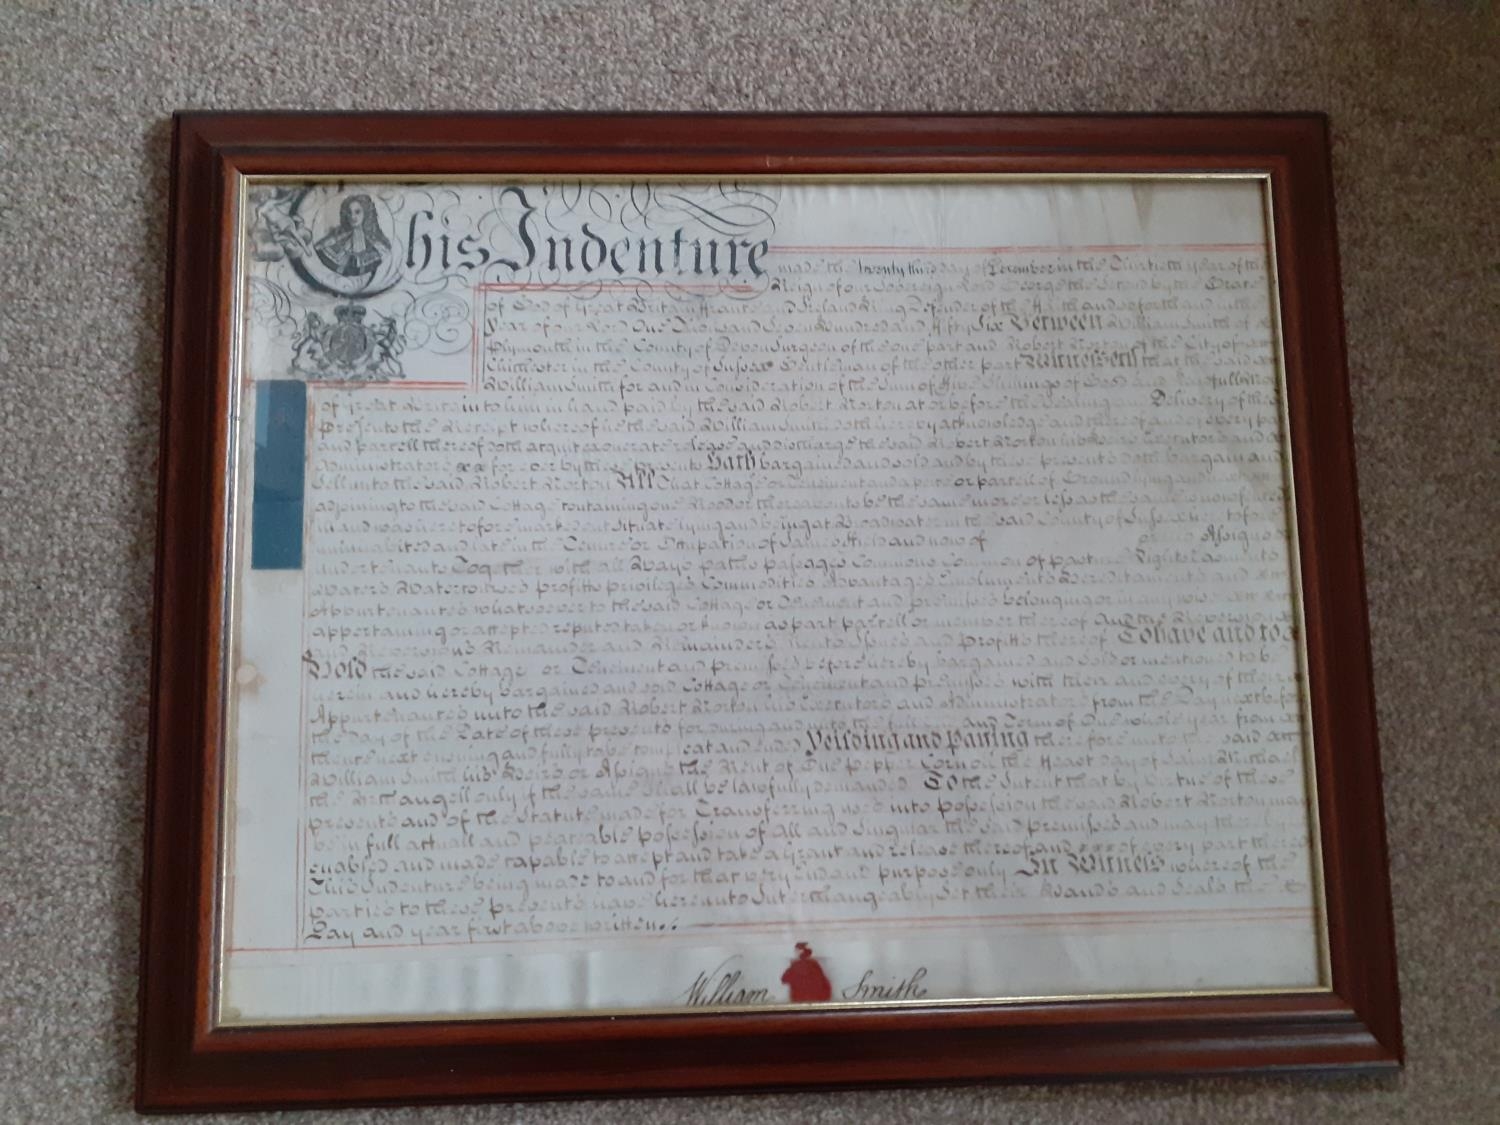 This Indenture made the twenty third day of December in the Thirtieth year of the
Reign of our Sovereign Lord George the Second by the Grace
of God of Great Britain France and Ireland King Defender of the Faith and so forth and in the
Year of our Lord One Thousand Seven Hundred and fifty Six Between William Smith of
Plymouth in the County of Devon Surgeon of the one part and Robert Norton of the City of
Chichester in the County of Sussex Gentleman of the other part Witnesseth that the said
William Smith for and in Consideration of the Sum of five Shillings of Good and Lawfull
of Great Britain to him in hand paid by the said Robert Norton at or before the Sealing and Delivery of these
presents the Receipt whereof he the said William Smith doth hereby acknowledge and thereof and of every
and parcell thereof doth acquit exonerate release and discharge the said Robert Norton his Heirs Executors and
Administrators for ever by these presents Hath bargained and sold and by these presents doth bargain and
sell unto the said Robert Norton All That Cottage or Tenement and a piece or parcell of Ground lying and
adjoining to the said Cottage containing one Rood or thereabouts be the same more or less as the same is now
and was heretofore marked out situate lying and being at Broadwater in the said County of Sussex
uninhabited and late in the Tenure or Occupation of James and now of Assigns
undertenants Together with all Ways paths passages Commons Common of pasture Rights Easements
Waters Watercourses profitts privileges Commodities Advantages Emoluments Hereditaments and
Appurtenances whatsoever to the said Cottage or Tenement and premisses belonging or in any wise
appertaining or accepted reputed taken or known as part parcell or member thereof and the Reversion
and Reversions Remainder and Remainders Rents Issues and Profitts thereof To have and to
Hold the said Cottage or Tenement and premisses before hereby bargained and sold or mentioned to be
herein and hereby bargained and sold Cottage or Tenement and premisses with their and every of their
Appurtenances unto the said Robert Norton his Executors and Administrators from the Day next before
the Day of the Date of these presents for during and unto the full and Term of One whole year from
thence next ensuing and fully to be compleat and ended Yeilding and paying therefore unto the said
William Smith his Heirs or Assigns the Rent of One pepper Corn on the Feast day of Saint Michael
the Archangell only if the same shall be lawfully demanded To the Intent that by virtue of these
presents and of the Statute made for Transferring uses into possession the said Robert Norton may
be in full actuall and peaceable possession of all and singular the said premisses and may thereby be
enabled and made capable to accept and take a Grant and release thereof and of every part thereof
This Indenture being made to and for that very End and purpose only In Witness whereof the
parties to these presents have hereunto Interchangeably set their Hands and Seals the
Day and year first above written
William Smith